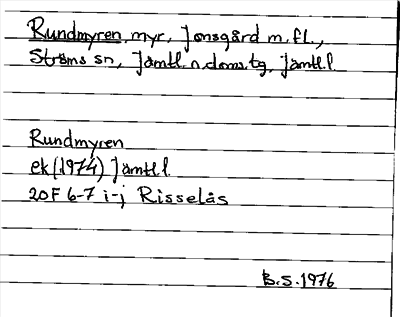 Rundmyren, myr, Jonsgård m.fl.,
Ströms sn, Jämtl.n.doms.tg, Jämtl.l.
Rundmyren
ek (1974) Jämtl l
20F 6-7 i-j Risselås
B.S.1976